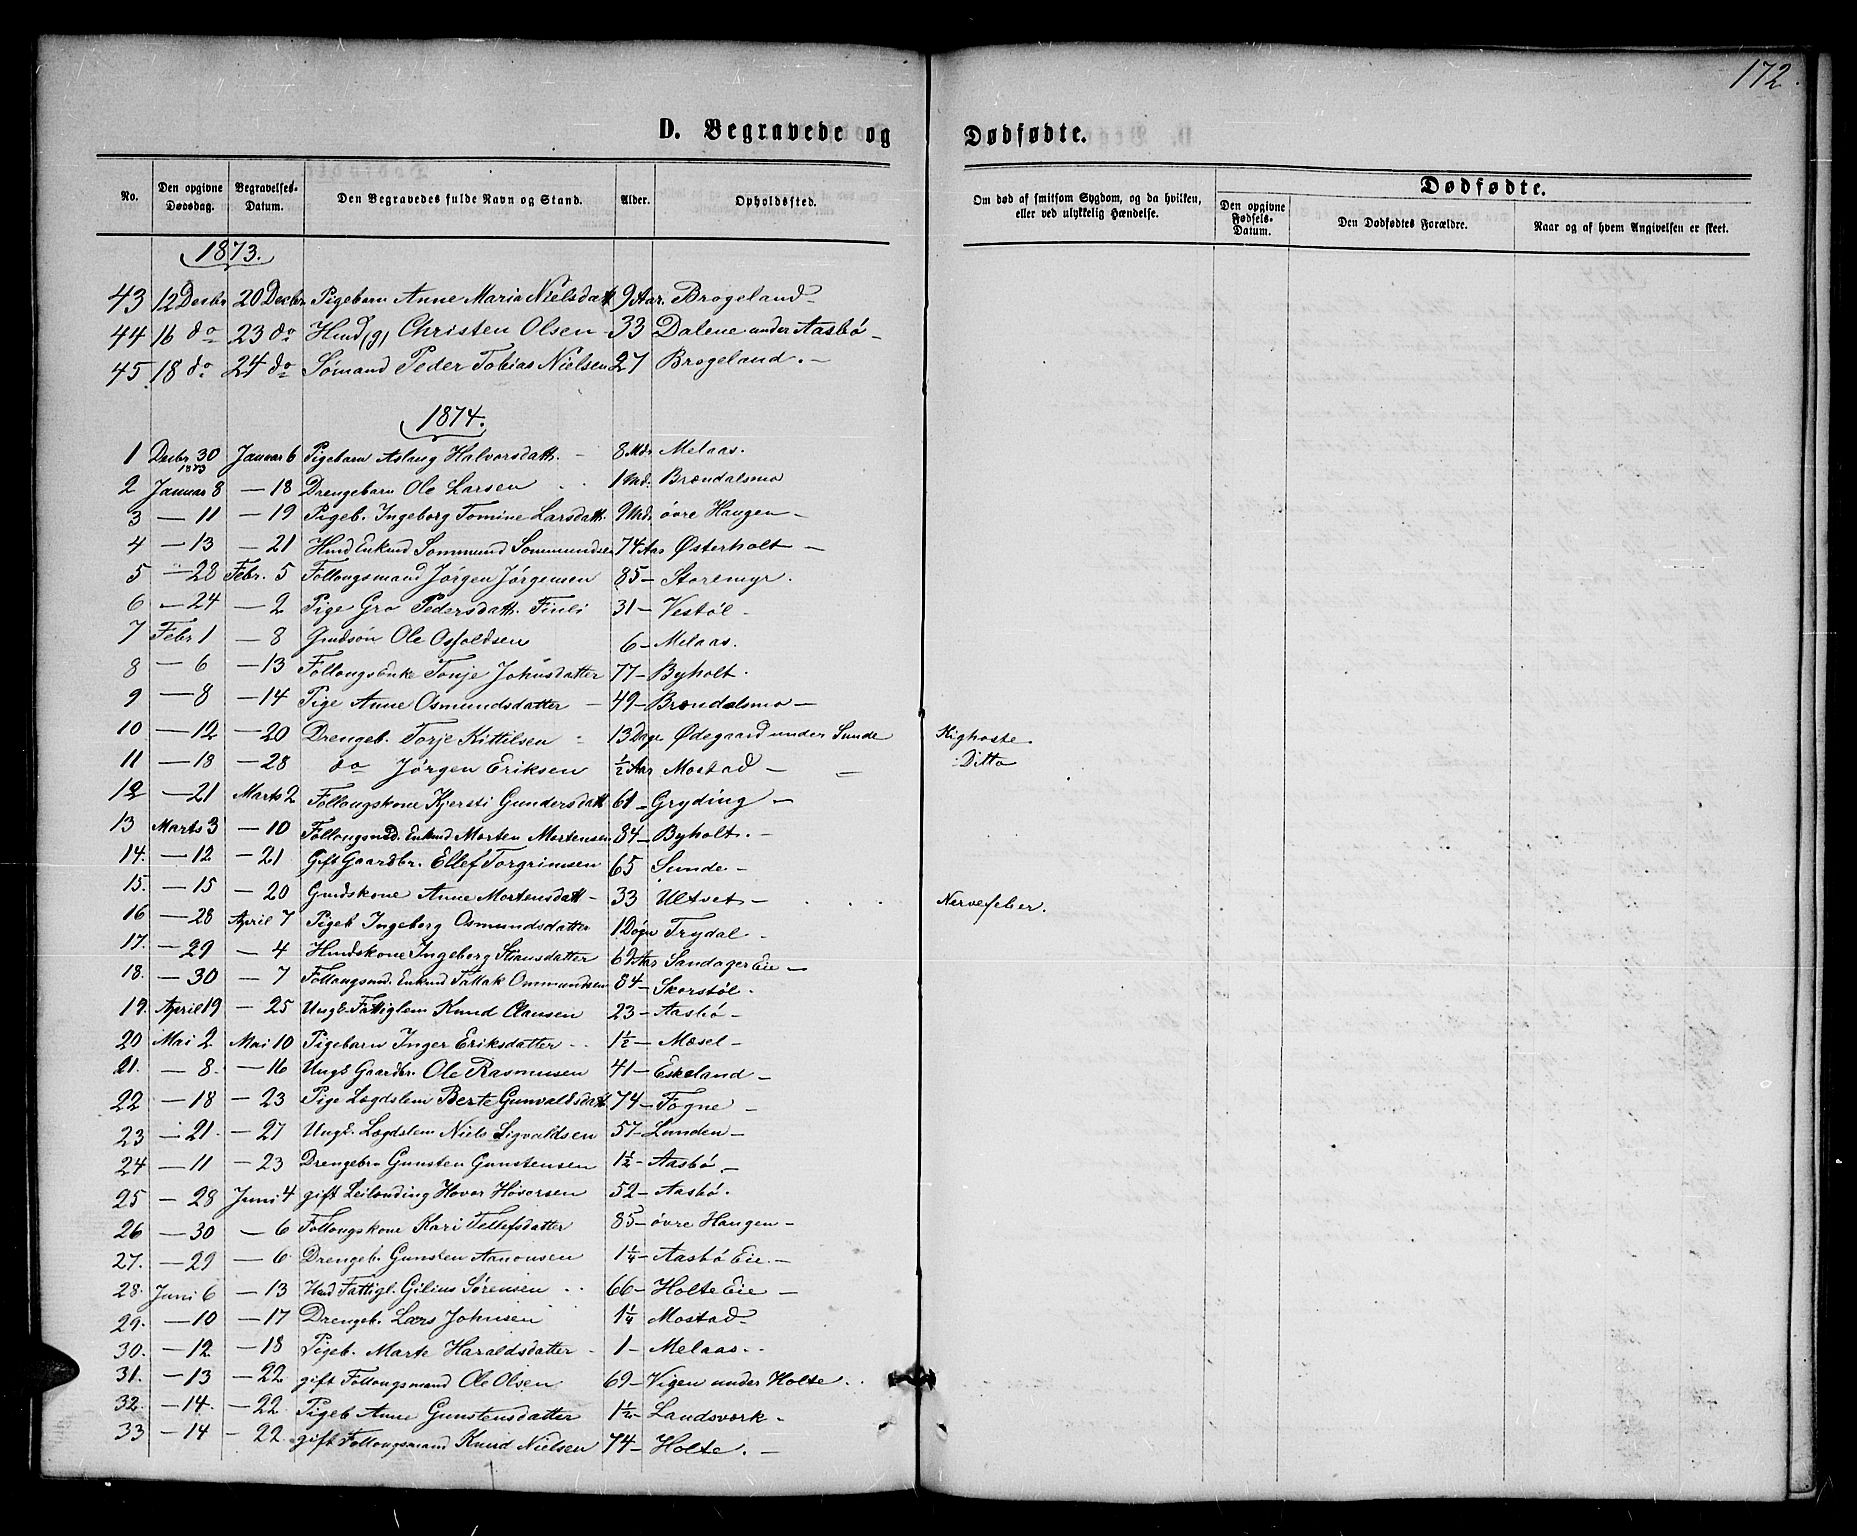 172.
D. Begravede og Dødfødte.
No. Den opgivne Dødsdag. Begravelses-Datum. Den Begravedes fulde Navn og Stand. Alder. Opholdssted. Om død af smitsom Sygdom, og da hvilken, eller ved ulykkelig Hændelse. Dødfødte. Den opgivne Fødsels-Datum. Den Dødfødtes Forældre. Naar og af hvem Angivelsen er skeet.
1873.
43 12 Decbr 20 Decbr Pigebarn Anne Maria Nielsdatt 9 Aar. Brogeland
44 16 do 23 do Hmd (g) Christen Olsen - 33 Dalene under Aasbø -
45. 18 do 24 do Sømand Peder Tobias Nielsen 27 Brogeland. -
1874.
1 Decbr 30 1873 Januar 6 Pigebarn Aslaug Halvorsdatt. - 8 Mdr Melaas.
2 Januar 8 - 18 Drengebarn Ole Larsen 1 Md. Brændalsmo
3 - 11 - 19 Pigeb. Ingeborg Tomine Larsdatt. 9 Mdr øvre Haugen -
4 - 13 - 21 Hmd Enkmd Sommund Sommundsen 74 Aar Østerholt -
5 - 28 Febr. 5 Follougsmand Jørgen Jørgensen 85 - Storemyr.
6 - 24 - 2 Pige Gro Pedersdatt. Finli 31 - Vestøl -
7 Febr 1 - 8 Gmdsøn Ole Osfoldsen 6 - Melaas.
8 - 6 - 13 Follougsenke Tonje Johnsdatter 77 - Byholt.
9 - 8 - 14 Pige Anne Osmundsdatter - 49 - Brændalsmo -
10 - 12 - 20 Drengeb. Torje Kittilsen 13 Dage Ødegaard under Sunde Kighoste.
11 - 18 - 28 do Jørgen Eriksen 1/2 Aar Mostad - - Ditto
12 - 21 Marts 2 Follougskone Kjersti Gundersdatt 61 - Gryding -
13 Marts 3 - 10 Follougsmd. Enkmd Morten Mortensen 84 - Byholt. -
14. - 12 - 21 Gift Gaardbr. Ellef Torgrimsen 65 Sunde -
15. - 15 - 20 Gmdskone Anne Mortensdatt - 33 Ultvet - Nervefeber.
16 - 28 April 7 Pigeb Ingeborg Osmundsdatter 1 Døgn Trydal -
17. - 29 - 4 Hmdskone Ingeborg Stiansdatter 62 Aar Sandager Eie -
18. - 30 - 7 Follougsmd. Enkmd Tallak Ommundsen 84 - Skorstøl.
19. April 19 - 25 Ungk. Fattiglem Knud Olausen 23 - Aasbø -
20 Mai 2 Mai 10 Pigebarn Inger Eriksdatter 1 1/2 - Mæsel -
21. - 8. - 16 Ungk Gaardbr. Ole Rasmusen 41 - Eskeland -
22 - 18 - 23 Pige Lægdslem Berte Gunvaldsdatt 74 - Fogne -
23 - 21. - 27 Ungk. Lægdslem Niels Sigvaldsen 57 - Lunden -
24 - 11 - 23 Drengebr Gunsten Gunstensen 1 1/2 - Aasbø. -
25 - 28 Juni 4 gift Leilending Hover Hoversen 52 - Aasbø.
26 - 30 - 6 Follougskone Kari Tellefsdatter 85 - øvre Haugen -
27. - 29 - 6 Drengeb. Gunsten Aanonsen 1 1/4 - Aasbø Eie. -
28. Juni 6 - 13 Hmd Fattigl. Gilius Sørensen 66 - Holte Eie -
29. - 10 - 17 Drengeb. Lars Johnsen 1 1/4 Mostad.
30. - 12 - 18 Pigeb. Marte Haraldsdatter - 1 - Melaas.
31. - 13 - 22 gift Follougsmand Ole Olsen 69 - Vigen under Holte.
32. - 14. - 22. Pigeb Anne Gunstensdatter 1 1/2 - Landsværk -
33 - 14 - 22. gift Follougsmand Knud Nielsen 74 - Holte. -